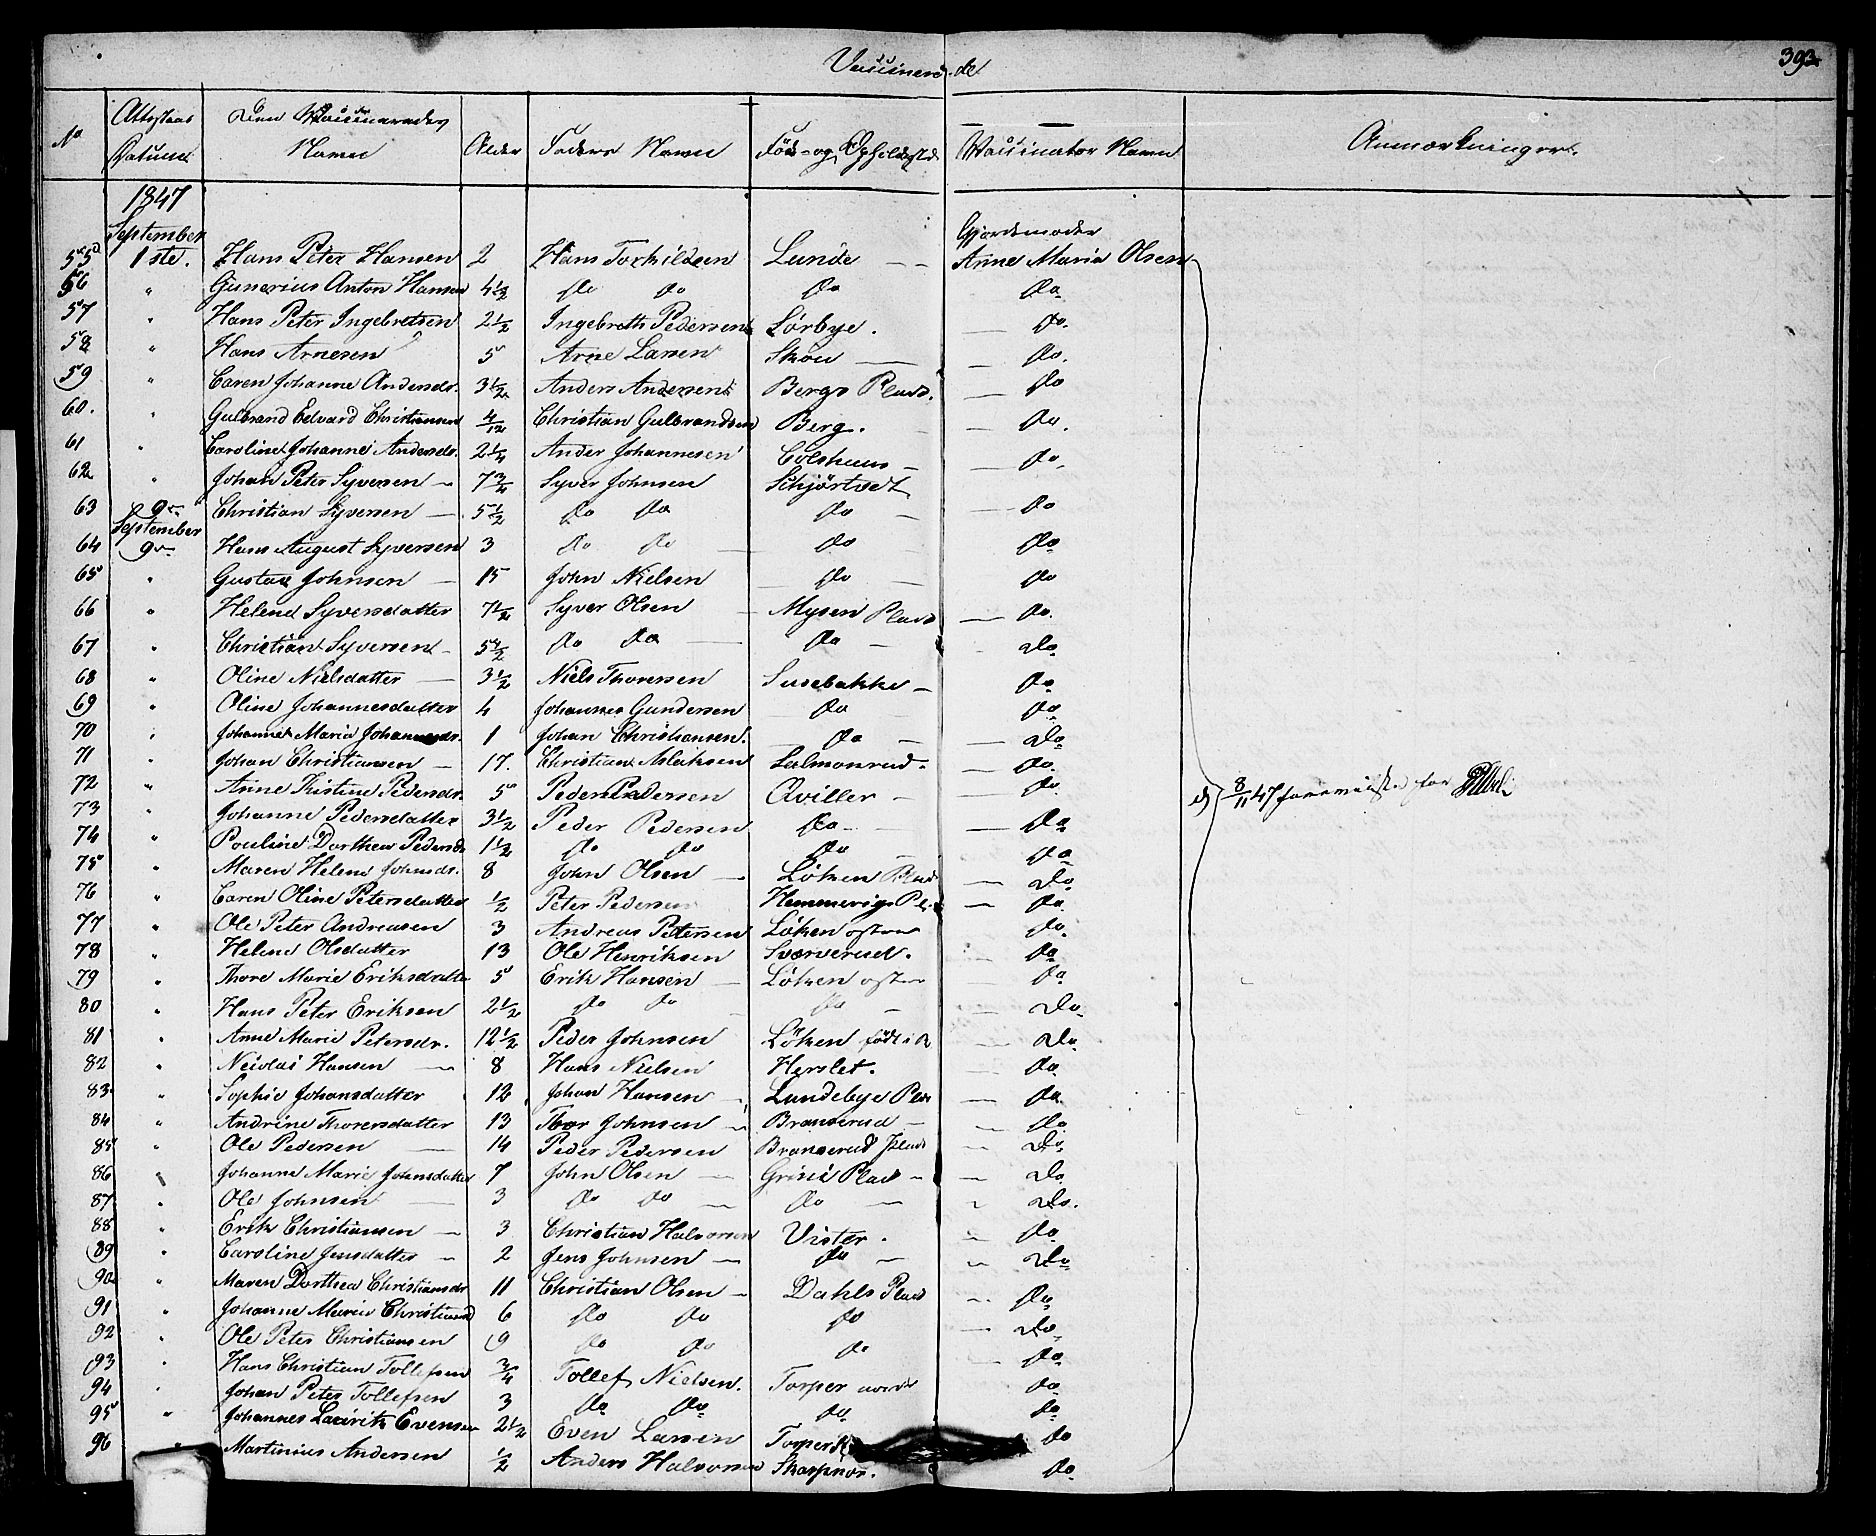 Vaccinerede.
393
No
Attestens Datum
Den Vaccineredes Navn
Alder
Faders Navn
Føde- og Opholdssted
Vaccinator Navn
Anmærkninger.
1847
September
Gjordemoder
55 1ste. Hans Peter Hansen 2 Hans Torkildsen Lunde — Anne Maria Olsen
56 " Gunerius Anton Hansen 4 1/2 do do do do
57 " Hans Peter Ingebretsen 2 1/2 Ingebreth Pedersen Lörbye. — do.
58 " Hans Arnesen 5 Arne Larsen Skou — do.
59 " Caren Johanne Andersdr. 3 1/2 Anders Andersen Bergs Plads. — do
60. " Gulbrand Edvard Christiansen 4/12 Christian Gulbrandsen Berg. — do.
61 " Caroline Johanne Andersdr. 2 1/4 Ander Johannesen Colshuus — do.
62 " Johan Peter Syversen — 7 3/4 Syver Johnsen Schjørtvedt
63 9de Christian Syversen — 5 1/2 do do do — do
September
64 9de Hans August Syversen 3 do do — do do
65 " Gustav Johnsen — 15 John Nielsen — do — do
66 " Helene Syversdatter 7 1/2 Syver Olsen — Mysen Plads — do.
67 " Christian Syversen — 5 1/2 do do — do — do
68 " Oline Nielsdatter — 3 1/2 Niels Thoresen Susebakke — do
69 " Oline Johannesdatter 4 Johannes Gundersen do do
70 " Johanne Maria Johannesdr. 1 Johan Christiansen. do — do
71 " Johan Christiansen — 17. Christian Eriksen Salmonrud. — do.
72 " Anne Kistine Pedersdr. 5 Peder Pedersen Qviller — do
73 " Johanne Pedersdatter 3 1/2 Peder Pedersen do — do
74 " Pouline Dorthea Pedersd 1 1/2 do do do do
75 " Maren Helene Johnsdr. 8 John Olsen — Löken Plads — do
76 " Caren Oline Petersdatter 1/2 Peter Pedersen Hemmerigs Pl — do
77 " Ole Peter Andreasen 3 Andreas Petersen Löken østre do.
78 " Helene Olsdatter 13 Ole Henriksen Sværverud. do
79 " Thore Marie Eriksdatter 5 Erik Hansen — Löken østre — do
80 " Hans Peter Eriksen 2 1/2 do do do — do.
81 " Anne Marie Petersdr. 12 1/2 Peder Johnsen Löken født i — do
82 " Nicolai Hansen — 8 Hans Nielsen Herslet. — do
83 " Sophie Johansdatter 12 Johan Hansen — Lundebye Plds — do.
84 " Andrine Thoresdatter 13 Thor Johnsen — Branserud — do
85 " Ole Pedersen — 14 Peder Pedersen Branserud Plads — do
86 " Johanne Marie Johnsdatter 7 John Olsen — Grini Plads — do
87 " Ole Johnsen — 3 do do — do — do.
88 " Erik Christiansen — 3 Christian Halvorsen Vister. do
89 " Caroline Jensdatter — 2 Jens Johnsen — do — do
90 " Maren Dorthea Christiansdr 11 Christian Olsen — Dahls Plads — do
91 " Johanne Maria Christiansd 6 do do do do
92 " Ole Peter Christiansen 9 do do do — do
93 " Hans Christian Tollefsen 3/4 Tollef Nielsen. Torper nordre do
94 " Johan Peter Tollefsen 3 do do do do
95 " Johannes Lauritz Evensen 2 1/2 Even Larsen Torper do
96 " Martinius Andersen 1/2 Anders Halvorsen Skarpnor. do
8/11 47